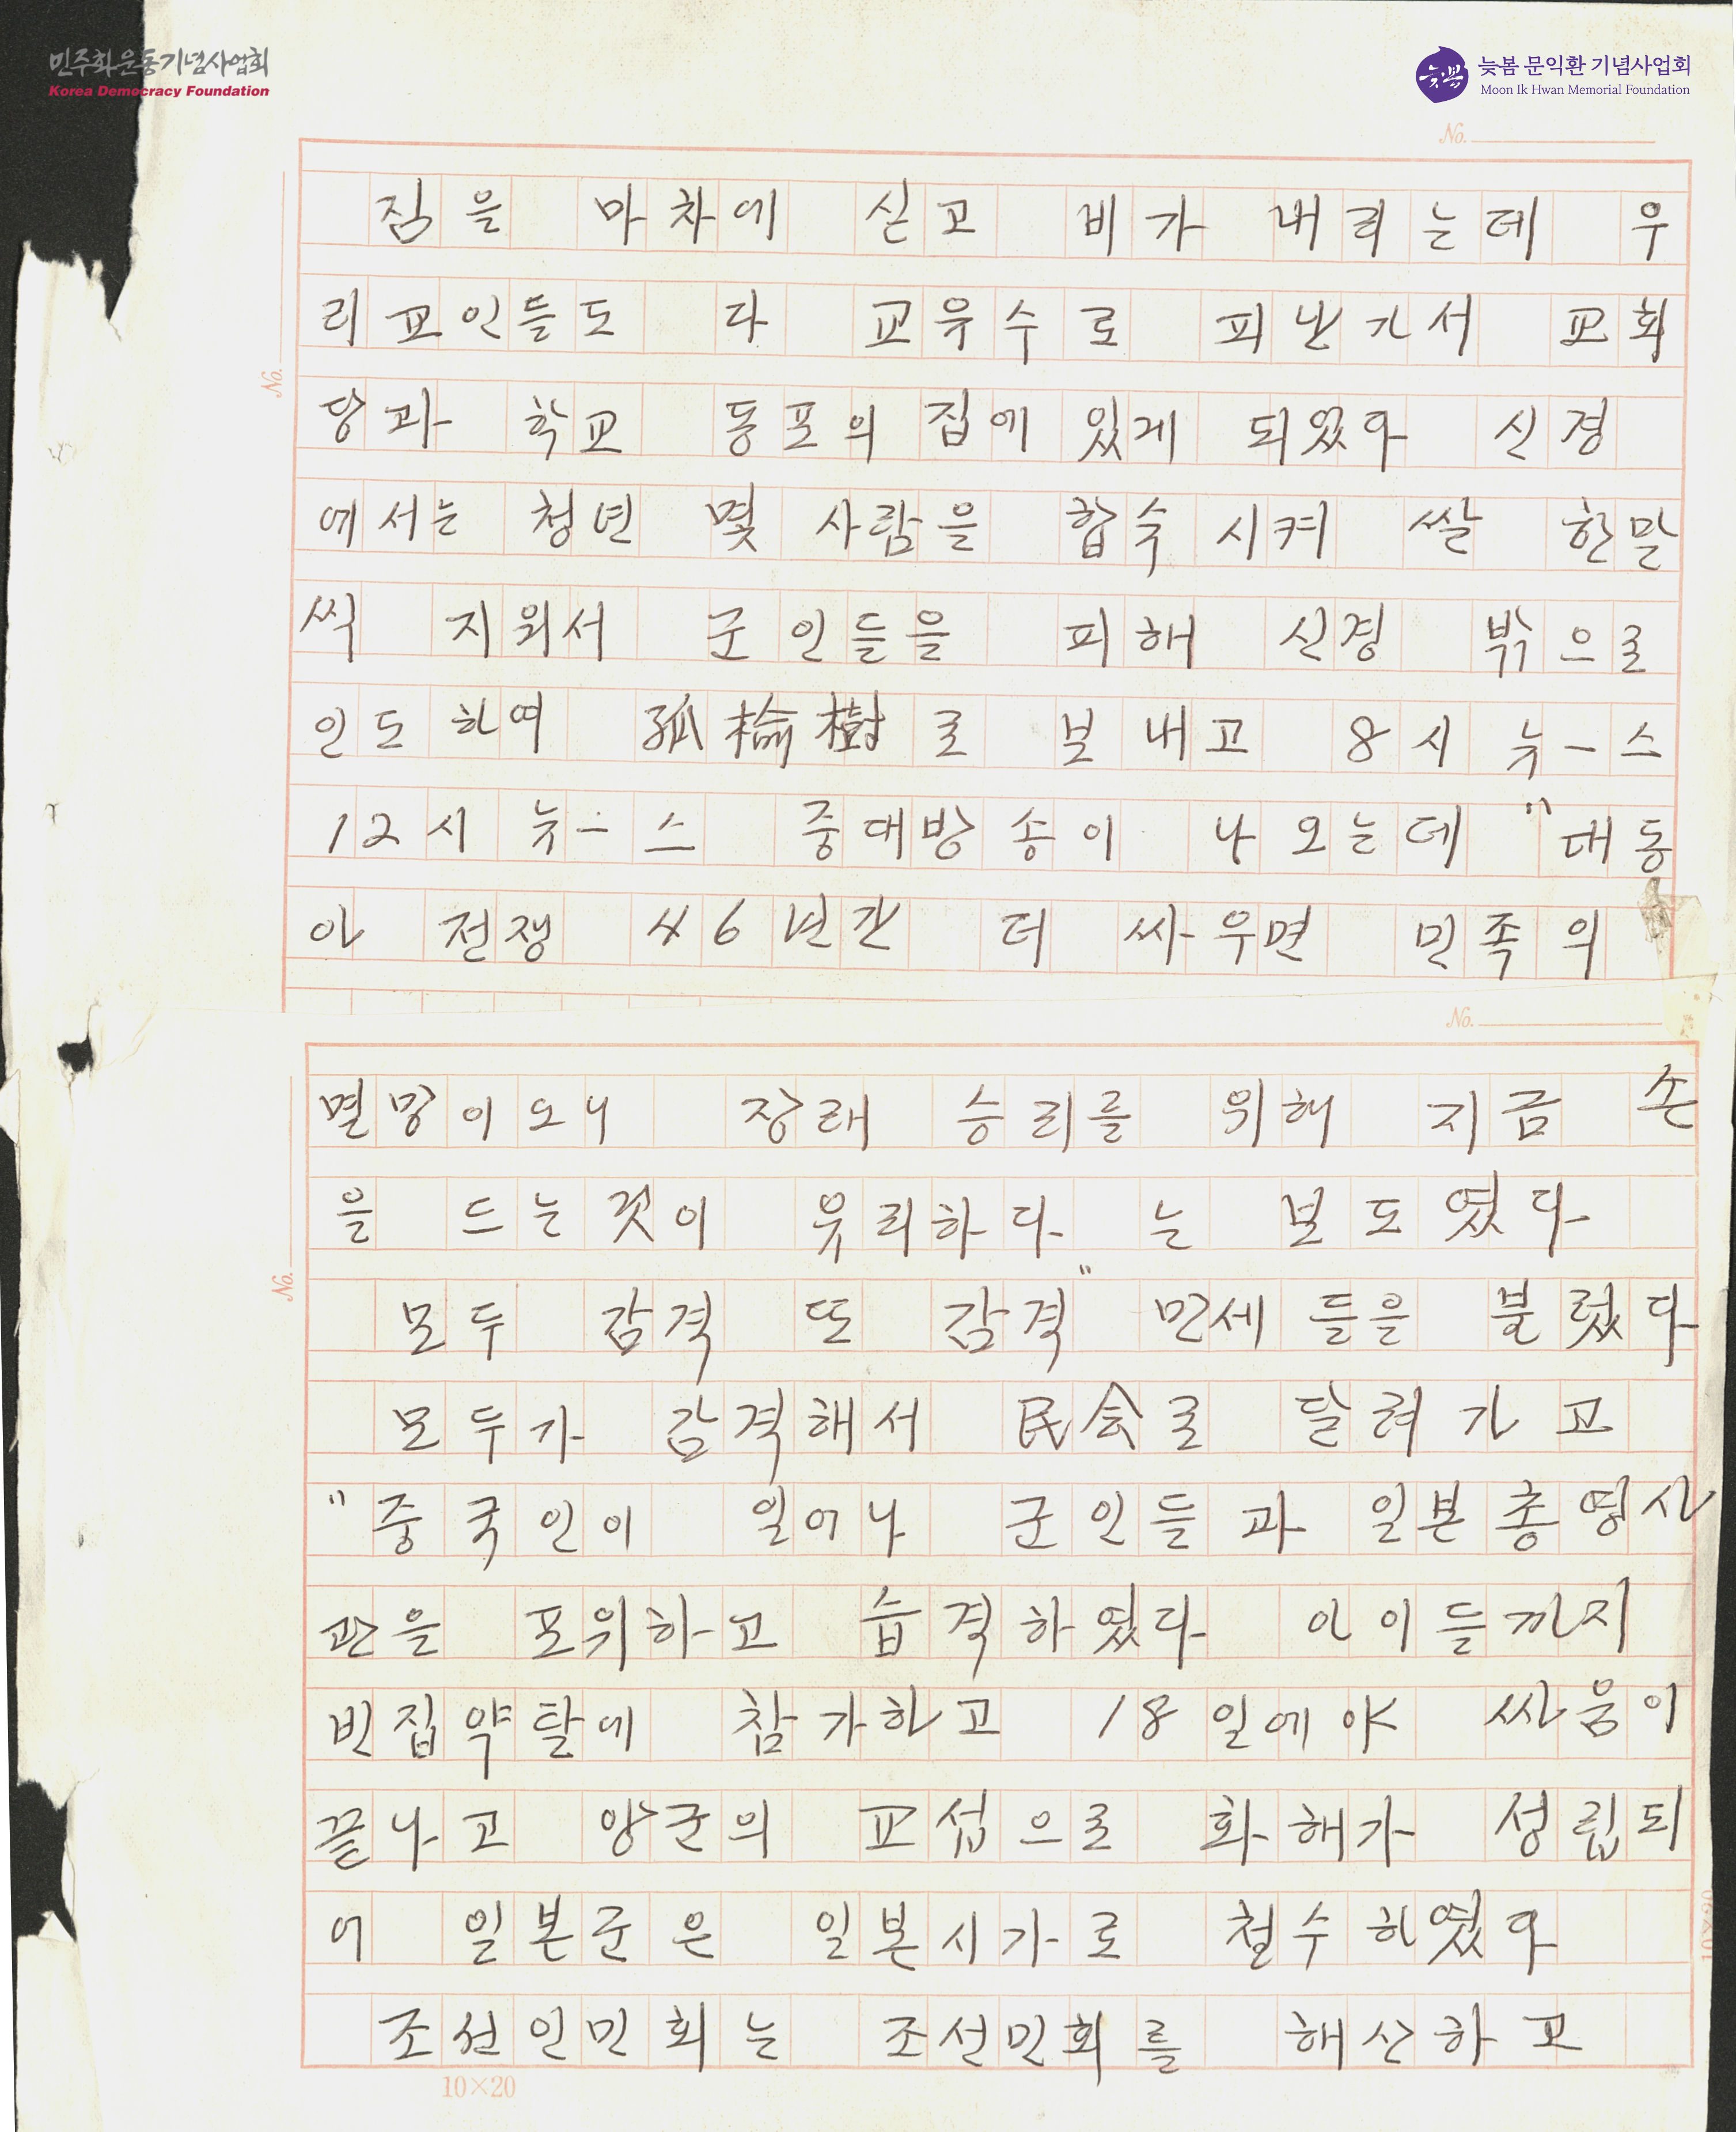 민주화운동기념사업회
Korea Democracy Foundation
늦봄
늦봄 문익환 기념사업회
Moon Ik Hwan Memorial Foundation
No.
No.
짐을 마차에 싣고 비가 내리는데 우
리교인들도 다 교유수로 피난가서 교회
당과 학교 동포의 집에 있게 되었다 신경
에서는 청년 몇 사람을 합숙시켜 쌀 한말
씩 지워서 군인들을 피해 신경 밖으로
인도하여 孤楡樹로 보내고 8시 뉴-스
12시 뉴-스 중대방송이 나오는데 "대동
아 전쟁 6년간 더 싸우면 민족의
No.
No.
멸망이오니 장래 승리를 위해 지금 손
을 드는것이 유리하다 는 보도였다
모두 감격 또 감격" 만세들을 불렀다
모두가 감격해서 民会로 달려가고
"중국인이 일어나 군인들과 일본총영사
관을 포위하고 습격하였다 아이들까지
빈집약탈에 참가하고 18일에야 싸움이
끝나고 양군의 교섭으로 화해가 성립되
어 일본군은 일본시가로 철수하였다
조선인민회는 조선민회를 해산하고
10×20
10×20